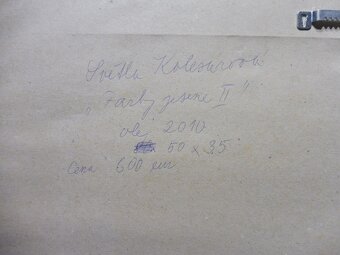 Světla Kolesárová
„Farby jesene II"
olej 2010
50 x 35
Cena 600 eur